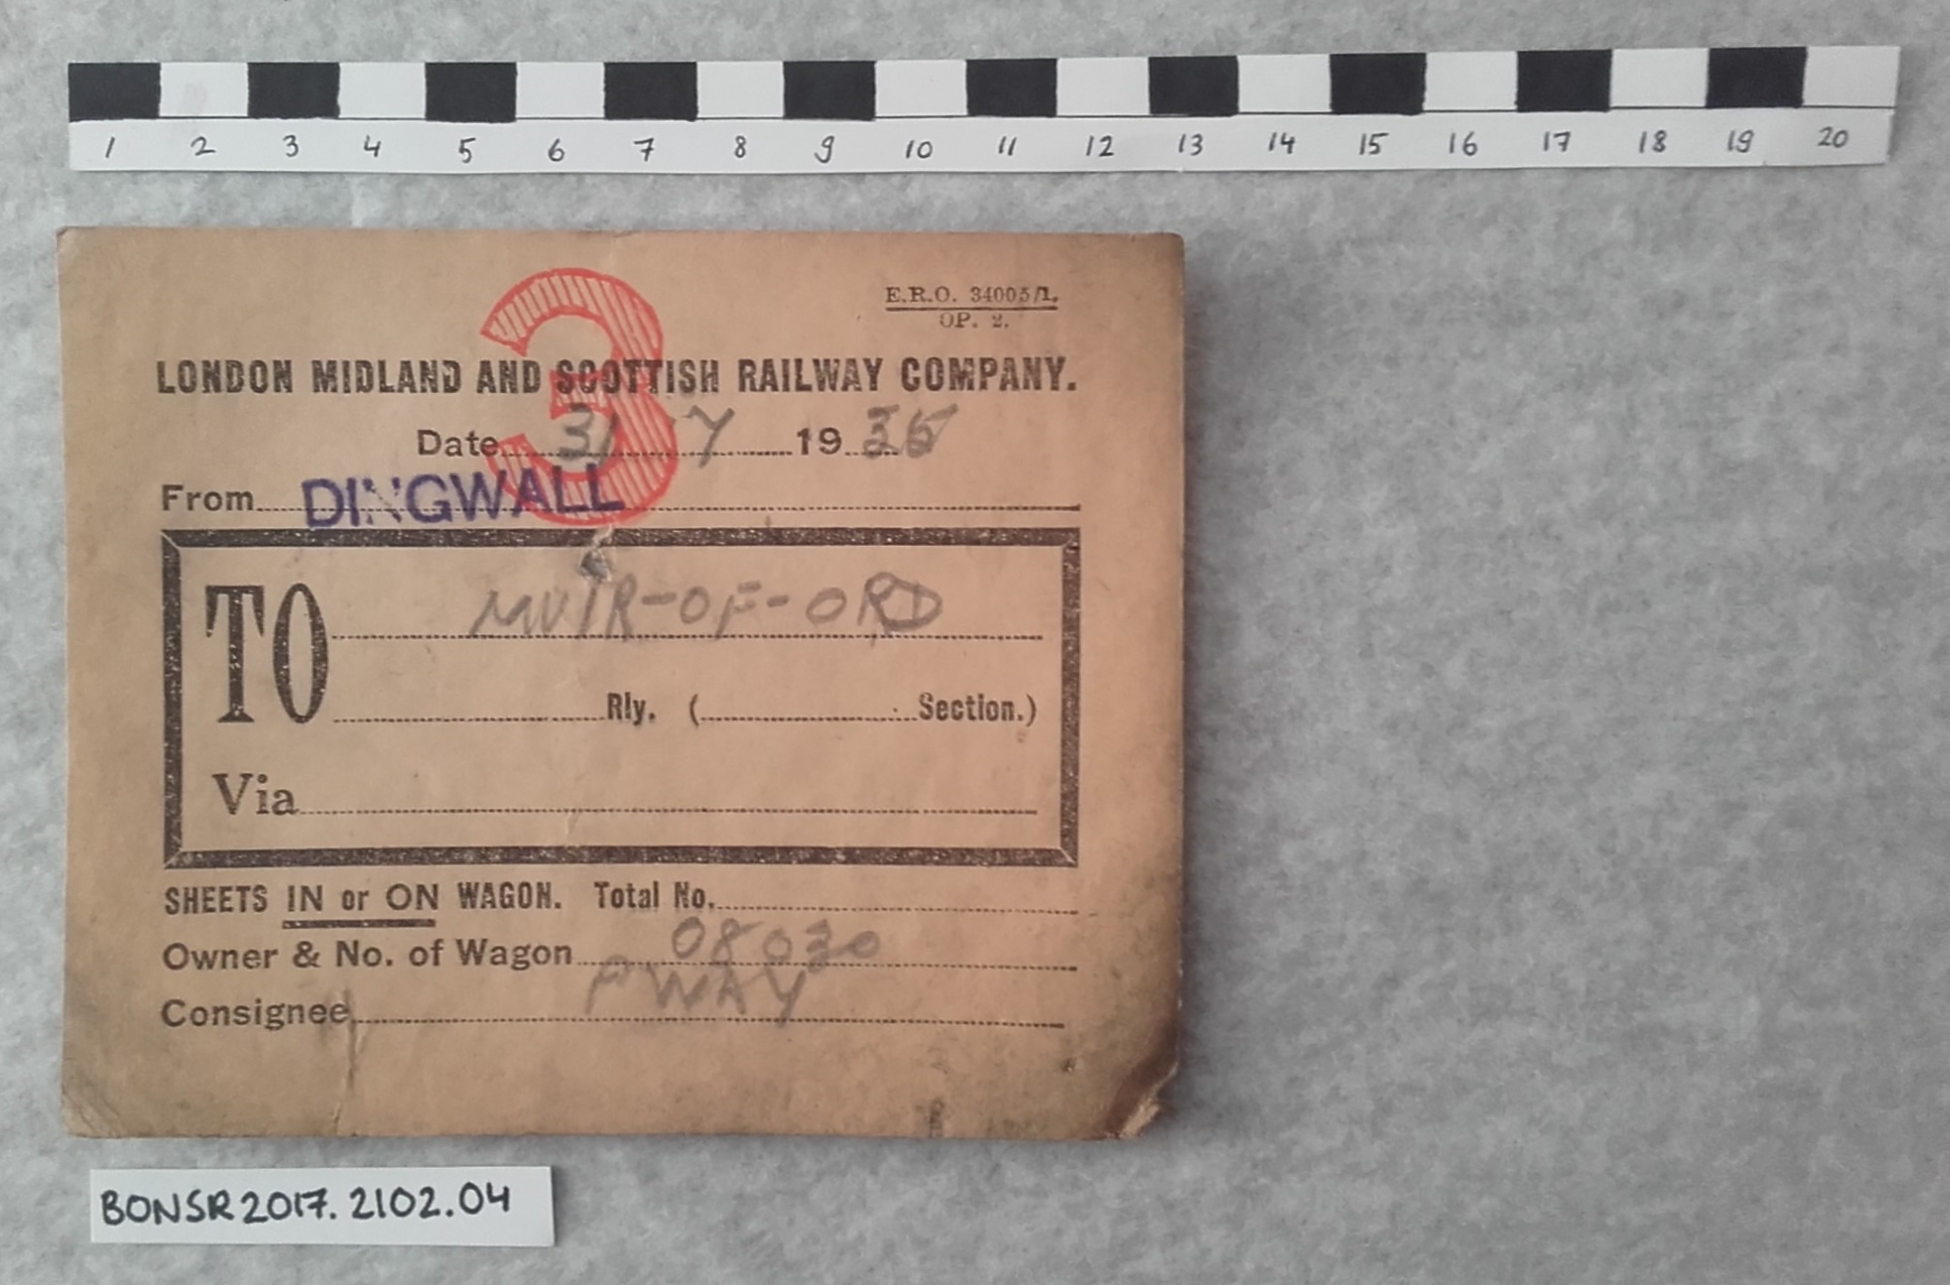 1 2 3 4 5 6 7 8 9 10 11 12 13 14 15 16 17 18 19 20
E.R.O. 34005/1.
OP. 2.
3
LONDON MIDLAND AND SCOTTISH RAILWAY COMPANY.
Date 31 7 1935
From DINGWALL
TO MUIR-OF-ORD
Rly. ( Section.)
Via
SHEETS IN or ON WAGON. Total No.
Owner & No. of Wagon 08030
Consignee PWAY
BONSR2017.2102.04